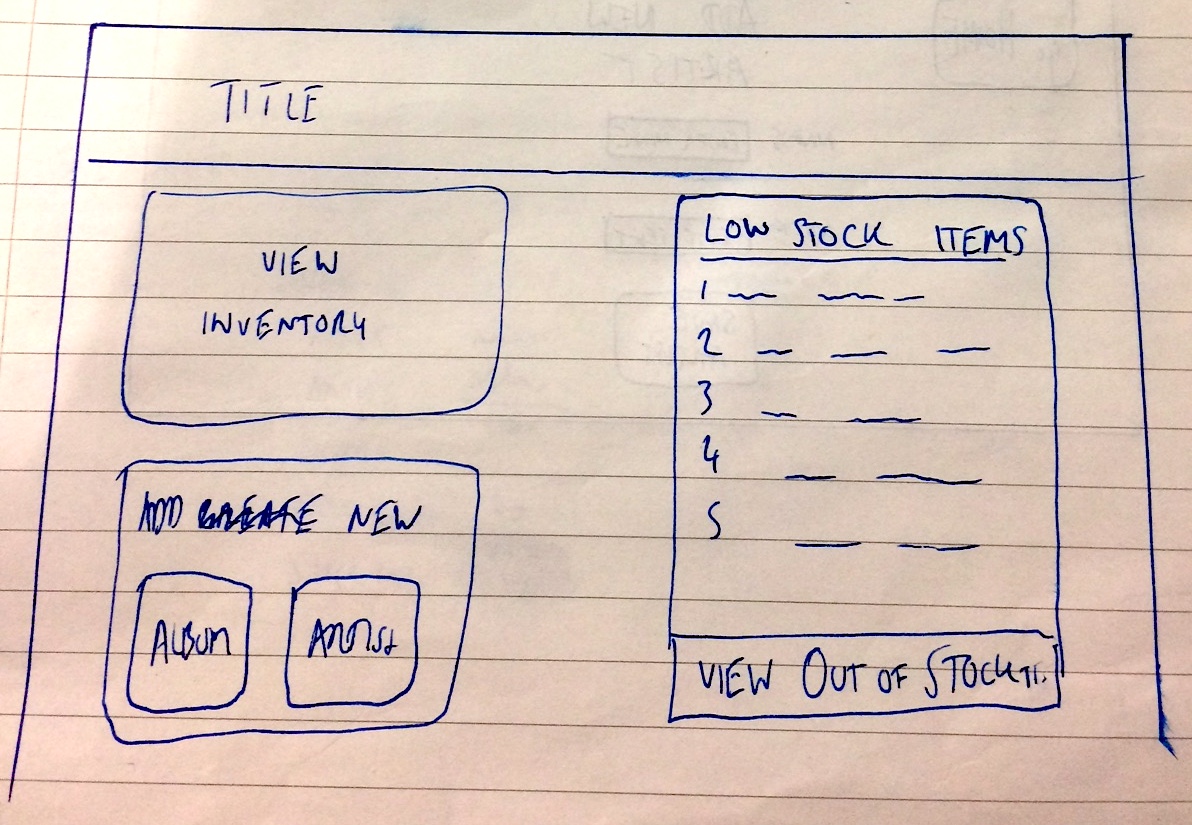 TITLE
VIEW
INVENTORY
ADD NEW
ALBUM
ARTIST
LOW STOCK ITEMS
1
2
3
4
5
VIEW OUT OF STOCK